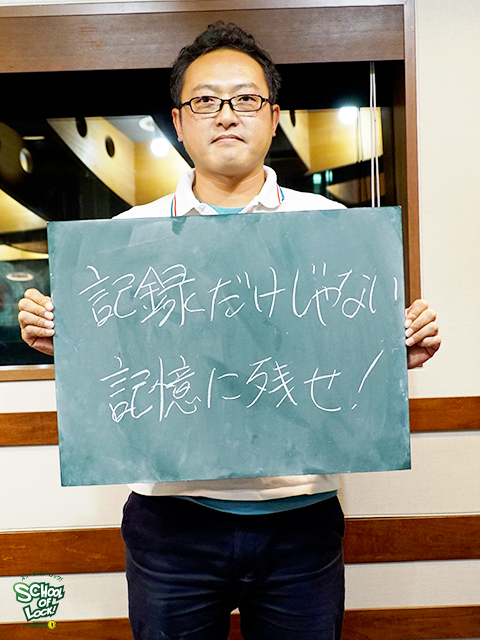 記録だけじゃない
記憶に残せ!
SCHOOL
OF
LOCK!